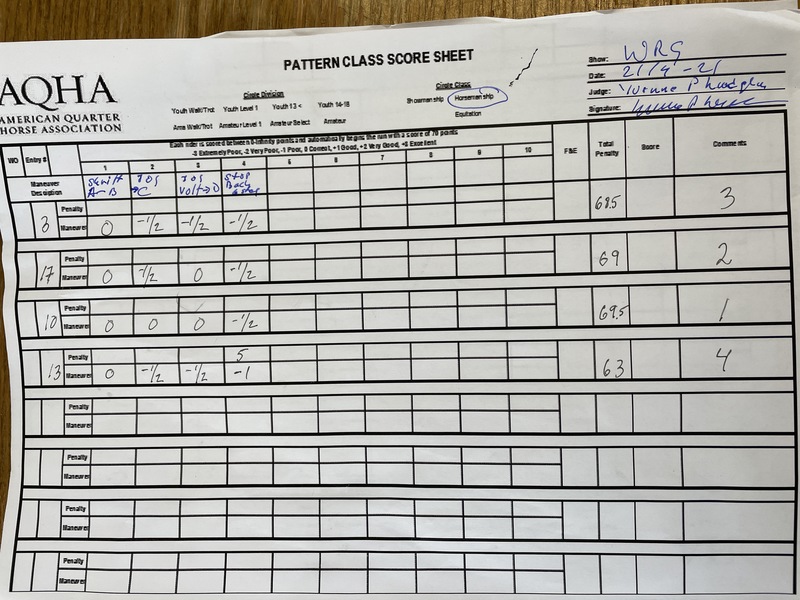 AQHA
AMERICAN QUARTER
HORSE ASSOCIATION
PATTERN CLASS SCORE SHEET
Circle Division
Youth Walk/Trot Youth Level 1 Youth 13 < Youth 14-18
Ama Walk/Trot Amateur Level 1 Amateur Select Amateur
Circle Class
Showmanship Horsemanship
Equitation
Show: WRG
Date: 21/4-21
Judge: Yvonne
Signature:
Each rider is scored between 0-infinity points and automatically begins the run with a score of 70 points
-3 Extremely Poor, -2 Very Poor, -1 Poor, 0 Correct, +1 Good, +2 Very Good, +3 Excellent
W/O Entry # 1 2 3 4 5 6 7 8 9 10 F&E Total Penalty Score Comments
Maneuver Description A-B JOG C JOG Volt → D Stop Back
3 Penalty 68.5 3
Maneuver 0 -1/2 -1/2 -1/2
17 Penalty 69 2
Maneuver 0 -1/2 0 -1/2
10 Penalty 69.5 1
Maneuver 0 0 0 -1/2
13 Penalty 5 63 4
Maneuver 0 -1/2 -1/2 -1
Penalty
Maneuver
Penalty
Maneuver
Penalty
Maneuver
Penalty
Maneuver